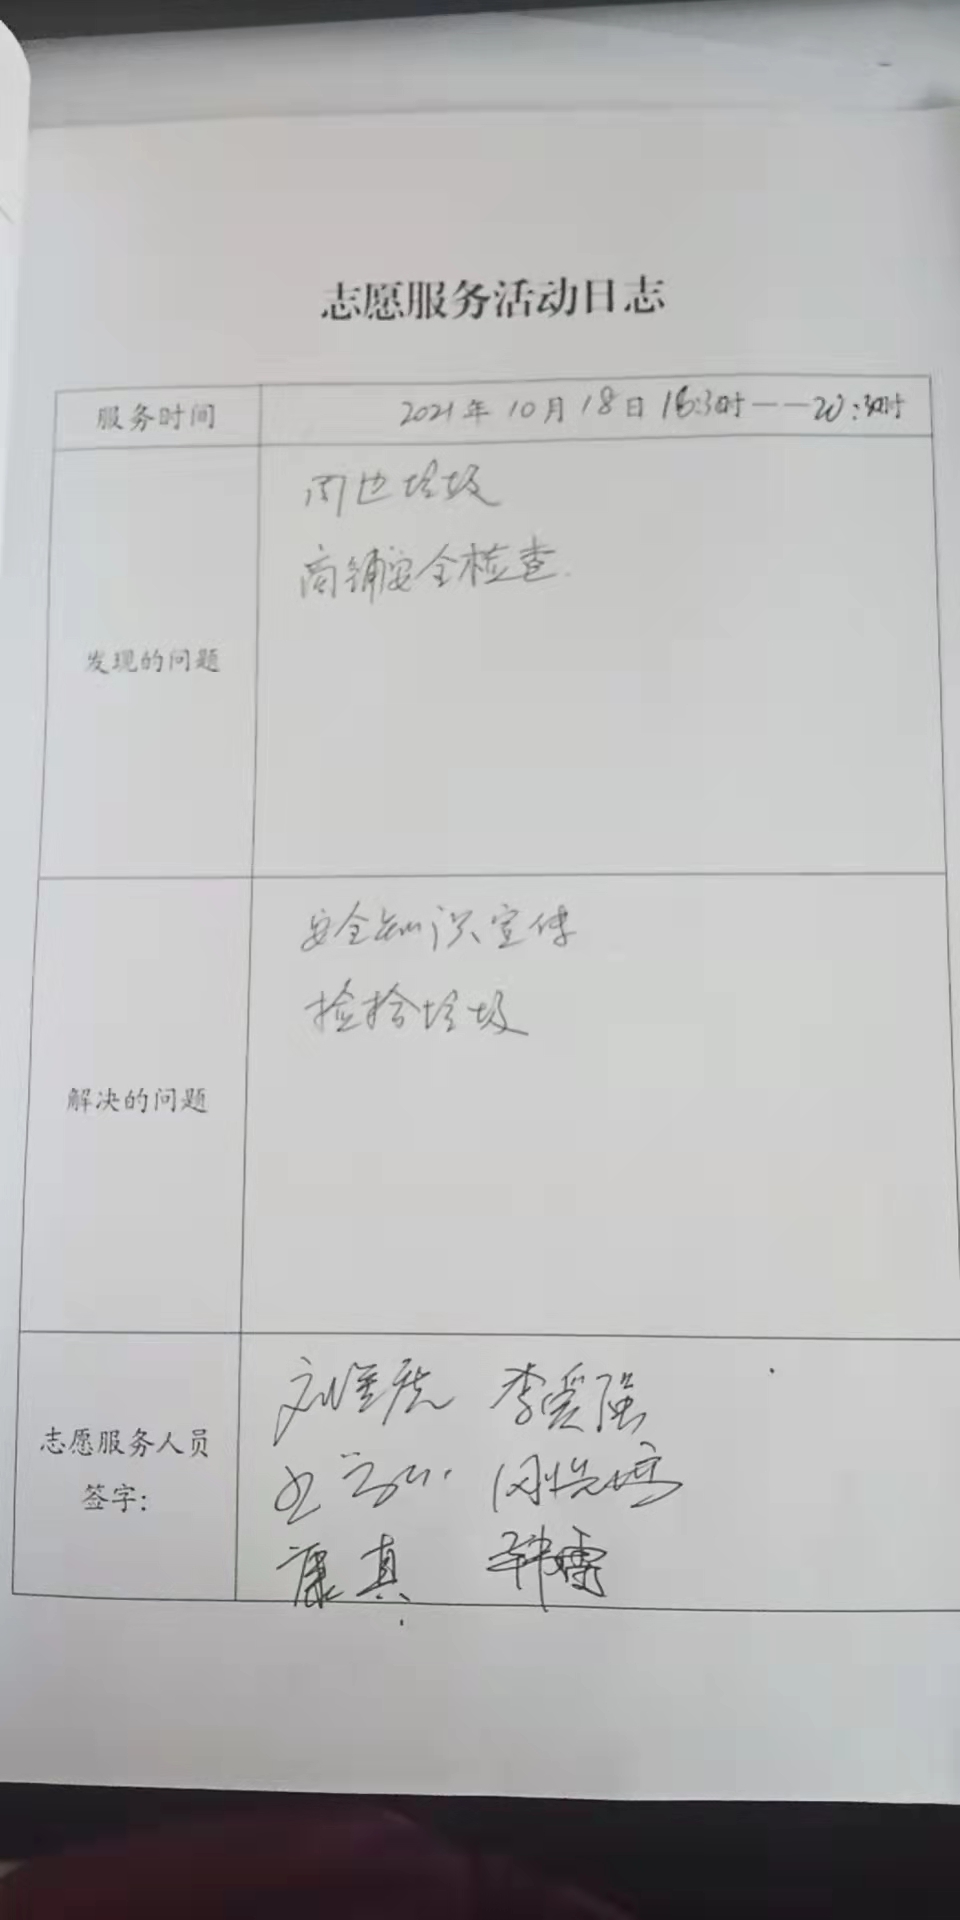 志愿服务活动日志
服务时间
2021年10月18日 16:30时——20:30时
发现的问题
周边垃圾
商铺安全检查.
解决的问题
安全知识宣传
捡拾垃圾
志愿服务人员
签字:
李爱强
康真 韩博